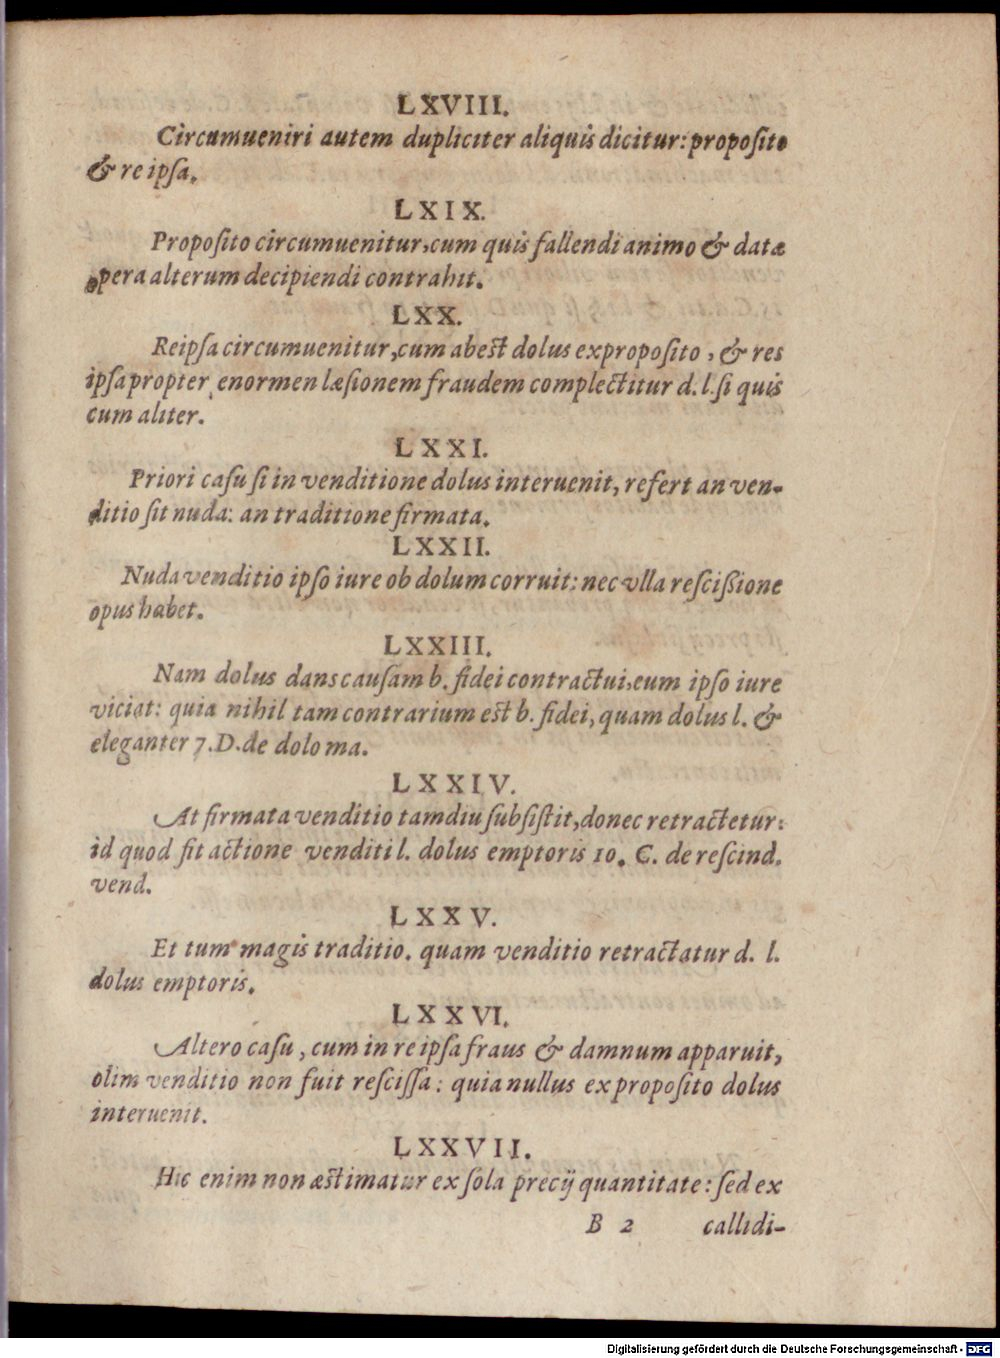 LXVIII.
Circumueniri autem dupliciter aliquis dicitur: proposito
& re ipsa.
LXIX.
Proposito circumuenitur, cum quis fallendi animo & datæ
opera alterum decipiendi contrahit.
LXX.
Reipsa circumuenitur, cum abest dolus exproposito, & res
ipsa propter enormen læsionem fraudem complectitur d. l. si quis
cum aliter.
LXXI.
Priori casu si in venditione dolus interuenit, refert an ven-
ditio sit nuda: an traditione firmata.
LXXII.
Nuda venditio ipso iure ob dolum corruit: nec vlla rescißione
opus habet.
LXXIII.
Nam dolus dans causam b. fidei contractui, eum ipso iure
viciat: quia nihil tam contrarium est b. fidei, quam dolus l. &
eleganter 7. D. de dolo ma.
LXXIV.
At firmata venditio tamdiu subsistit, donec retractetur:
id quod fit actione venditi l. dolus emptoris 10. C. de rescind.
vend.
LXXV.
Et tum magis traditio. quam venditio retractatur d. l.
dolus emptoris.
LXXVI.
Altero casu, cum in re ipsa fraus & damnum apparuit,
olim venditio non fuit rescissa: quia nullus ex proposito dolus
interuenit.
LXXVII.
Hic enim non æstimatur ex sola precij quantitate: sed ex
B 2 callidi-
Digitalisierung gefördert durch die Deutsche Forschungsgemeinschaft - DFG